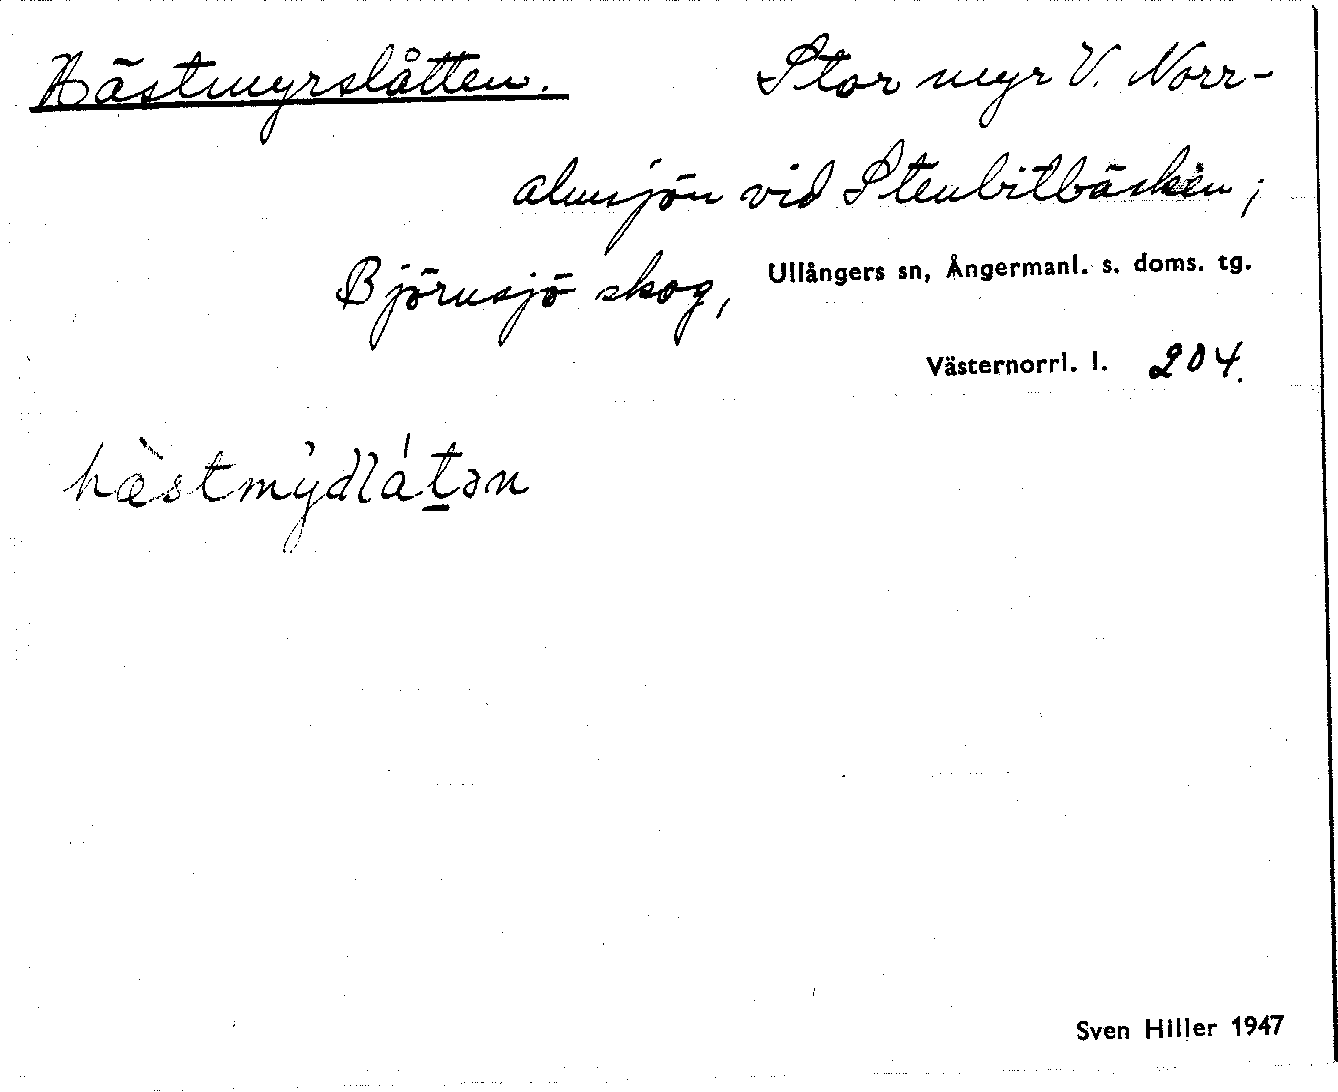 Hästmyrslåtten. Stor myr V. Norr-
almsjön vid Stenbitbäcken;
Björnsjö skog, Ullångers sn, Ångermanl. s. doms. tg.
Västernorrl. l. 204.
hæ̀stmỳdlátən
Sven Hiller 1947